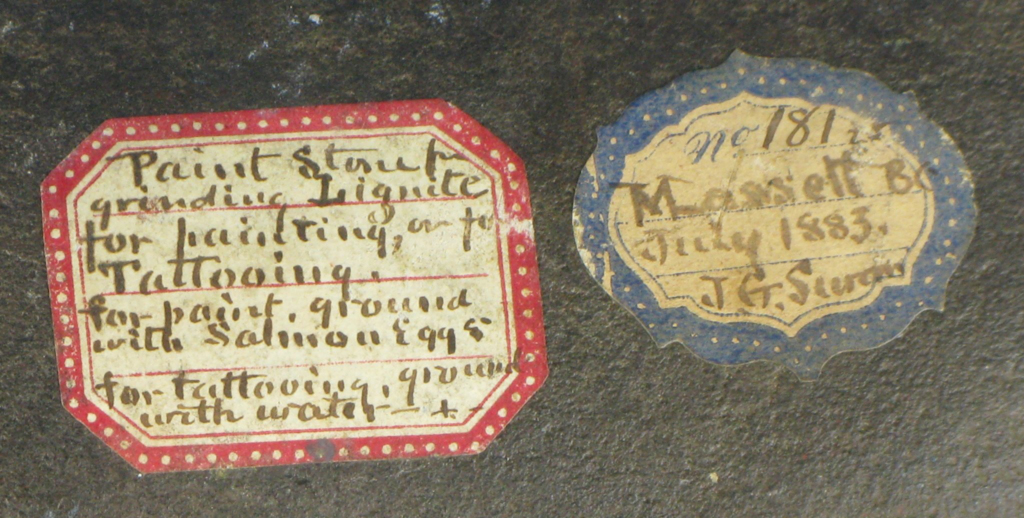 Paint Stone for
grinding Lignite
for painting, or for
Tattooing.
for paint, ground
with Salmon Eggs
for tattooing, ground
with water - + -
No 181
Massett B.C
July 1883.
J G. Swan